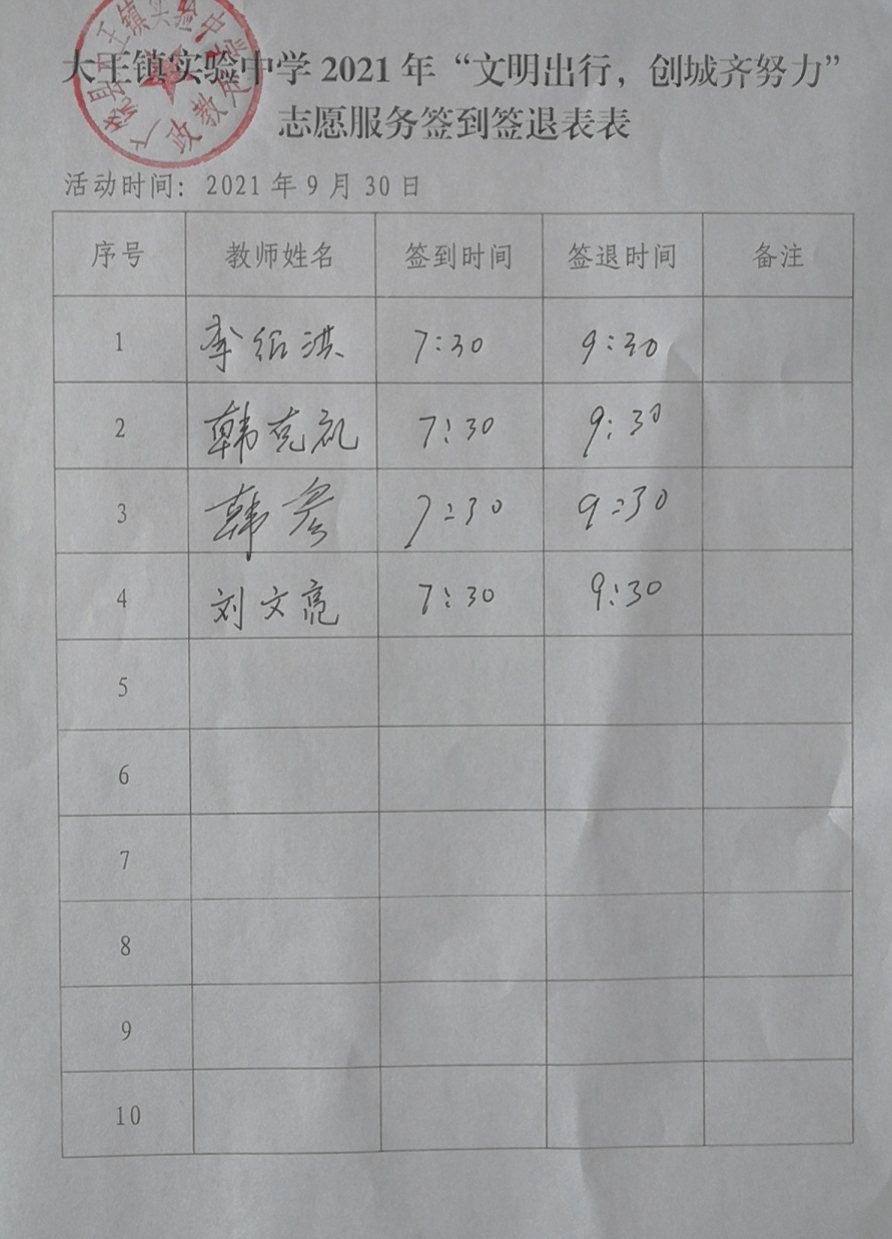 大王镇实验中学 2021 年“文明出行，创城齐努力”
志愿服务签到签退表表
活动时间：2021 年 9 月 30 日
序号 教师姓名 签到时间 签退时间 备注
1 李绍洪 7:30 9:30
2 韩克礼 7:30 9:30
3 韩 7:30 9:30
4 刘文亮 7:30 9:30
5
6
7
8
9
10